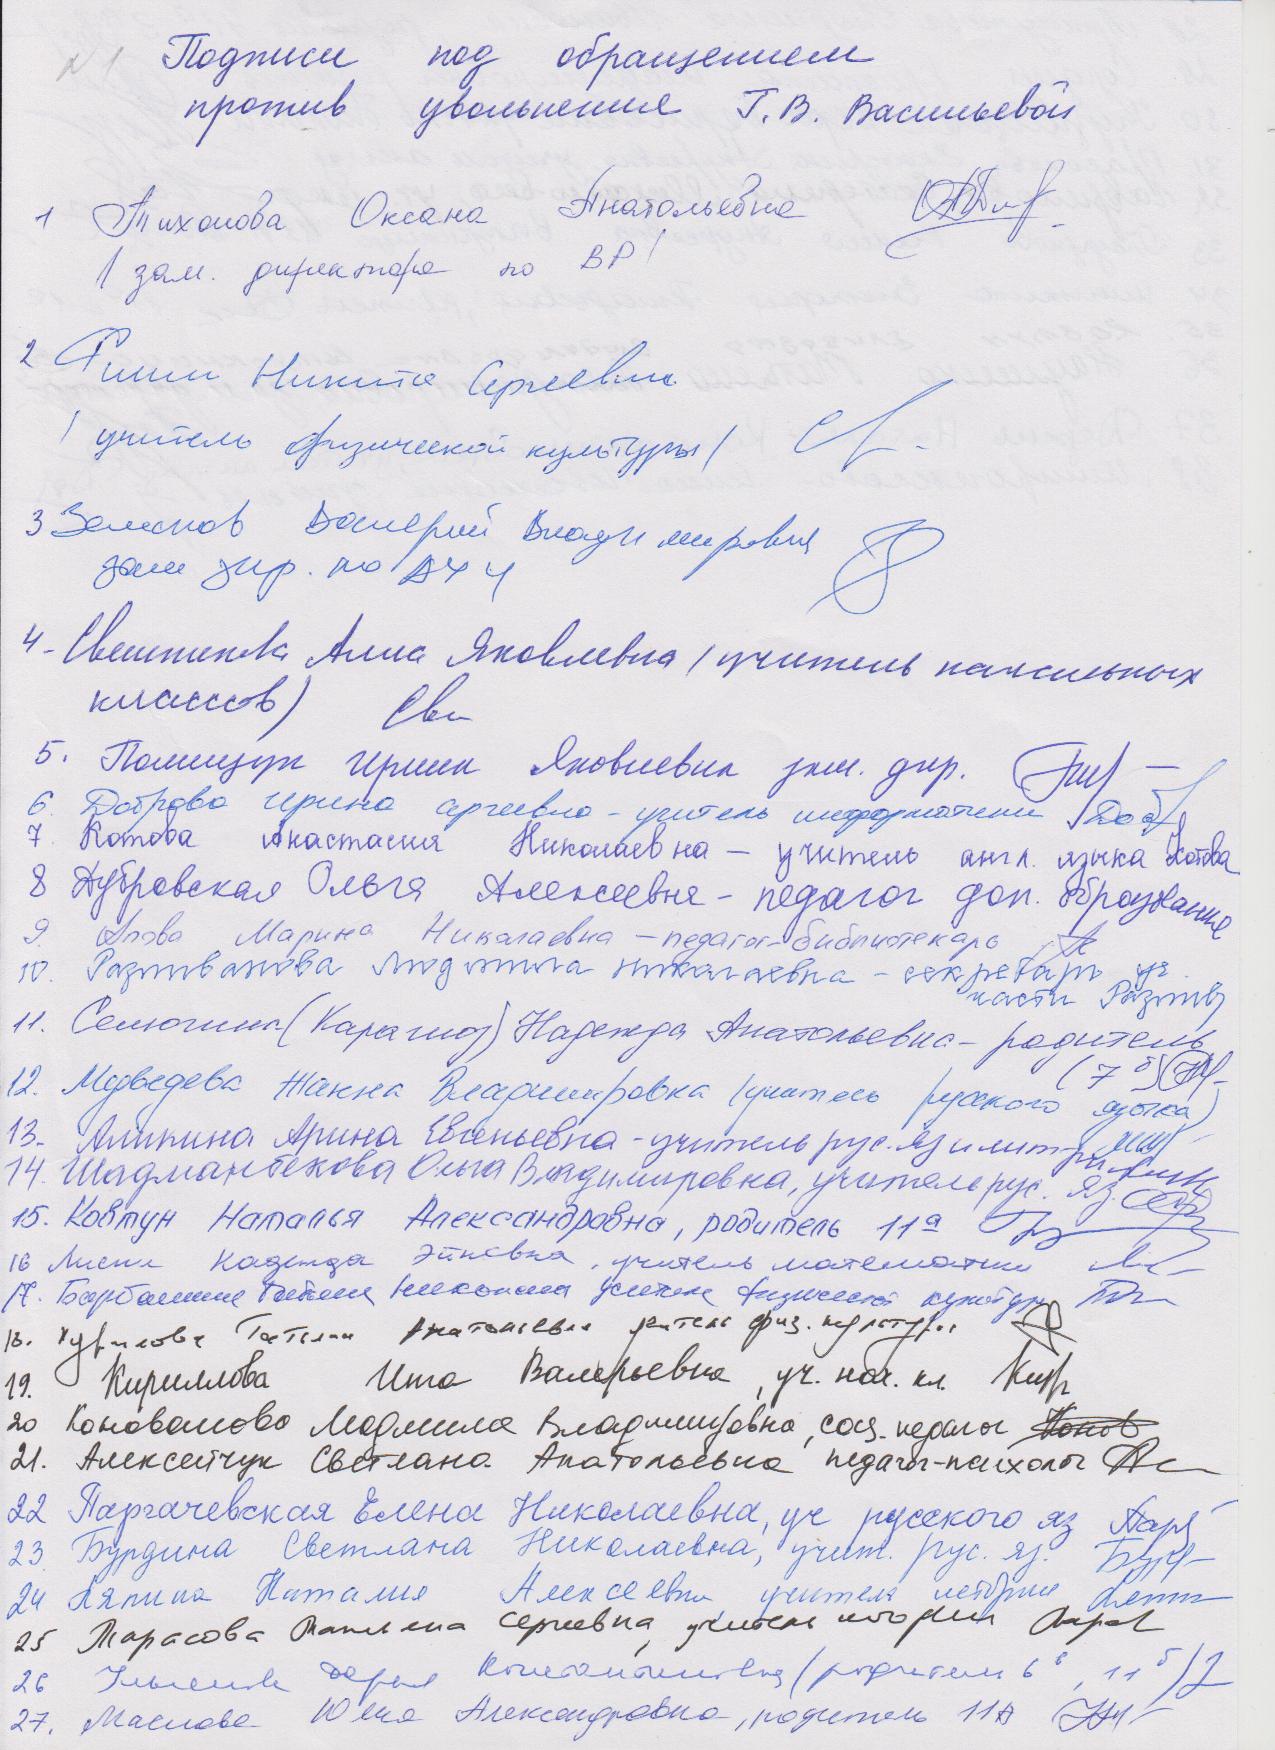 №1 Подписи под обращением
против увольнения Г.В. Васильевой
1 Тихонова Оксана Анатольевна
/ зам. директора по ВР /
2 Никита Сергеевич
/ учитель физической культуры /
3 Валерий Владимирович
зам дир. по АХЧ
4. Свешникова Алла Яковлевна (учитель начальных
классов) Све
5. Полищук Ирина Яковлевна зам. дир.
6. Доброва Ирина Сергеевна - учитель информатики Доб
7 Котова Анастасия Николаевна - учитель англ. языка Котова
8 Дубровская Ольга Алексеевна - педагог доп. образования
9. Марина Николаевна - педагог-библиотекарь
10. Людмила Николаевна - секретарь уч.
части
11. Селюгина (Карагиоз) Надежда Анатольевна - родитель
(7 б)
12. Медведева Жанна Владимировна (учитель русского языка)
13. Аликина Арина Евгеньевна - учитель рус. яз и литературы
14. Шадманбекова Ольга Владимировна, учитель рус. яз.
15. Ковтун Наталья Александровна, родитель 11а
16 Надежда, учитель математики
17. учитель физической культуры
18. Курилова Татьяна Анатольевна учитель физ. культуры
19. Кириллова Инга Валерьевна, уч. нач. кл. Кир
20 Коновалова Людмила Владимировна, соц. педагог Конов
21. Алексейчук Светлана Анатольевна педагог-психолог
22 Паргачевская Елена Николаевна, уч русского яз Парг
23. Бурдина Светлана Николаевна, учит. рус. яз. Бур
24 Ляпина Наталия Алексеевна учитель истории
25 Тарасова Сергеевна, учитель истории
26 Дарья Константиновна (родитель 6 в, 11 б)
27. Маслова Юлия Александровна, родитель 11А